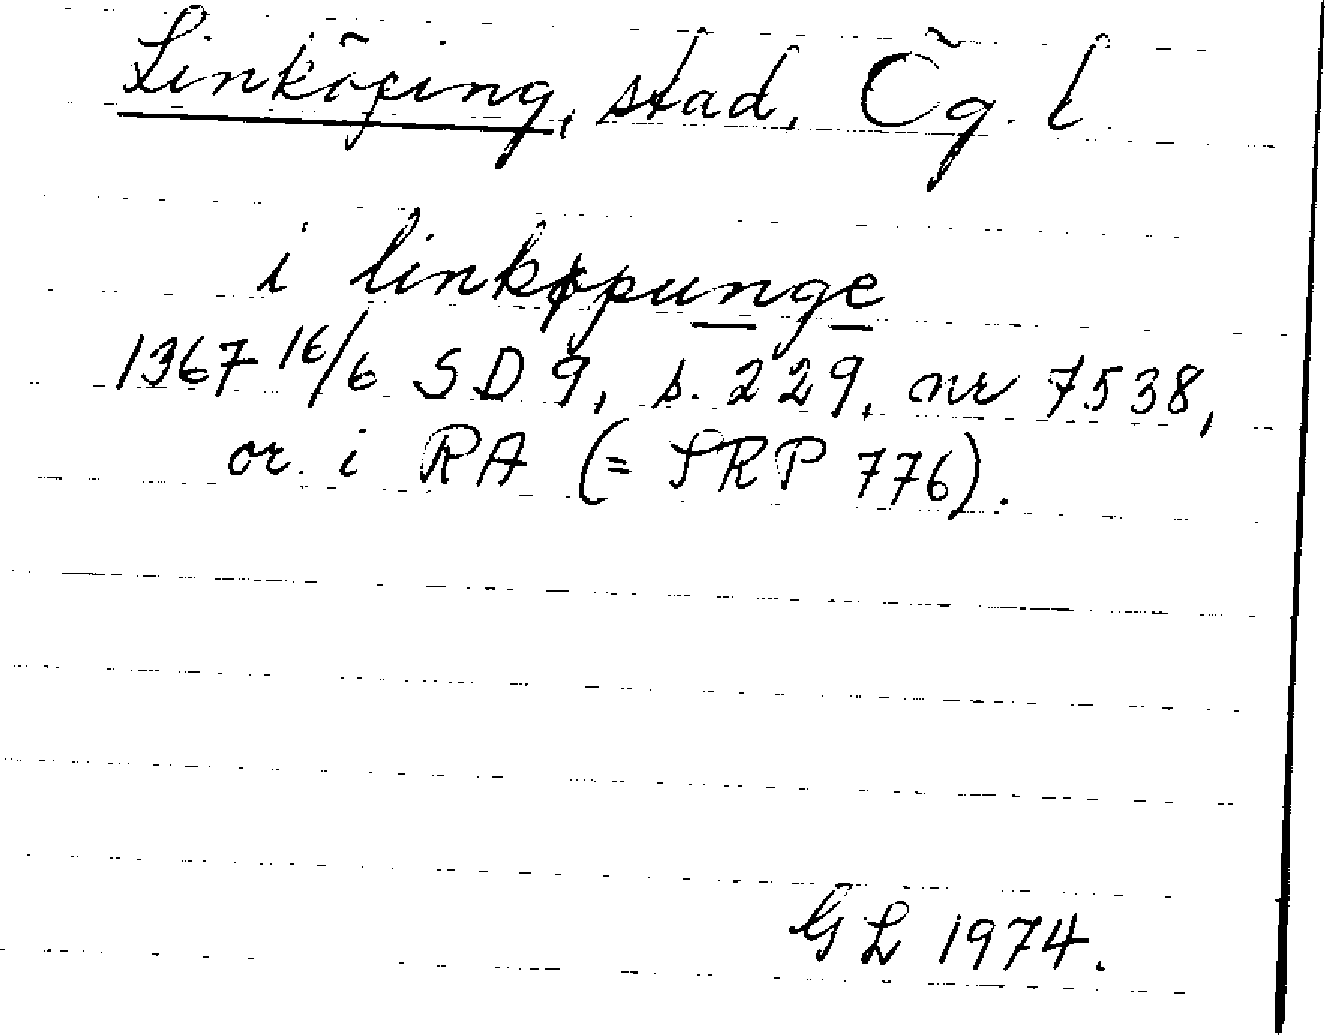 Linköping, stad, Ög. l
i linkøpunge
1367 16/6 SD 9, s. 229, nr 7538,
or. i RA (= SRP 776).
GL 1974.